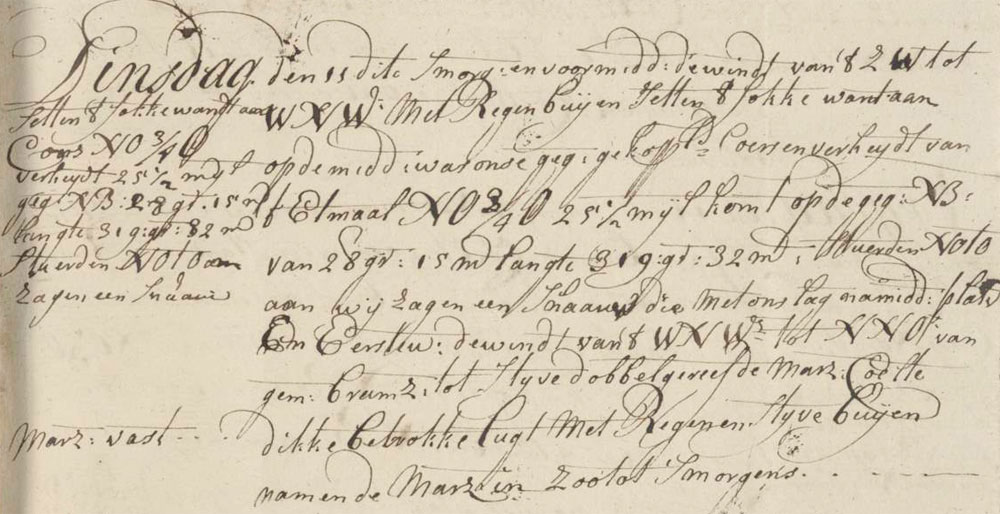 Dinsdag den 11 dito Smorg: en voormidd: de windt van 't Z W tot
WNW:t Met Regen buijen Setten 't fokke want aan
op de midd: was onse geg: gekopp:de Coers en verheydt van
't Etmaal NO 3/4 O 25 1/2 mijl komt op de geg: NB:
van 28 gr: 15 m langte 319: gr: 32 m: Stuerden NOtO
aan wij zagen een Snaauw die met ons lag namidd: platv
En Eerste w: de windt van 't WNW:t tot NNO:t van
gem: bramz: tot Styve dobbel gereefde Marz: Coelte
dikke betrokke lugt Met Regen en Styve buijen
namen de Marz: in zoo tot Smorgens
Setten 't fokke wandt aan
Coers NO 3/4 O
verheydt 25 1/2 mijl
geg: NB: 28 gr. 15 m
langte 319: gr: 32 m
Stuerden NOtO aan
zagen een Snaauw
Marz: vast